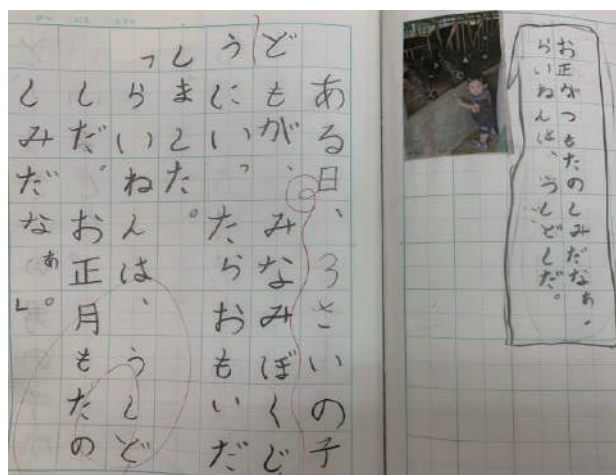 お正がつもたのしみだなぁ。
らいねんは、うしどしだ。
ある日、3さいの子
どもが、みなみぼくじ
うにいったらおもいだ
しました。
「らいねんは、うしど
しだ。お正月もだの
しみだなぁ。」